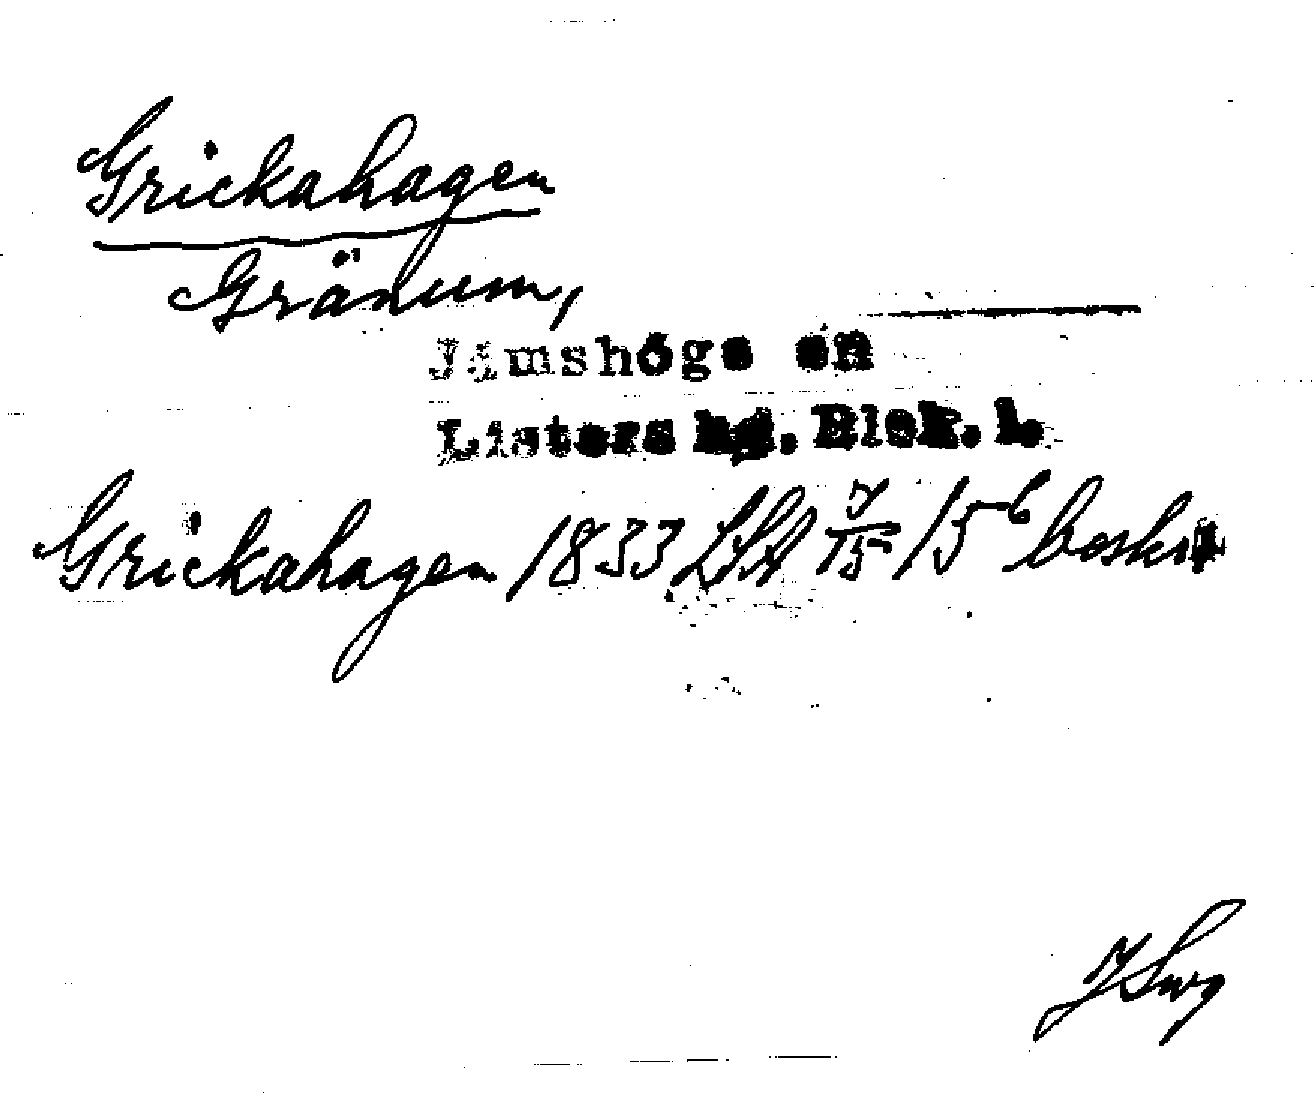 Grickahagen
Gränum,
Jämshögs en
Listers hd. Blek. l.
Grickahagen 1833 LSA 7/15 15⁶ beskr
JSwg